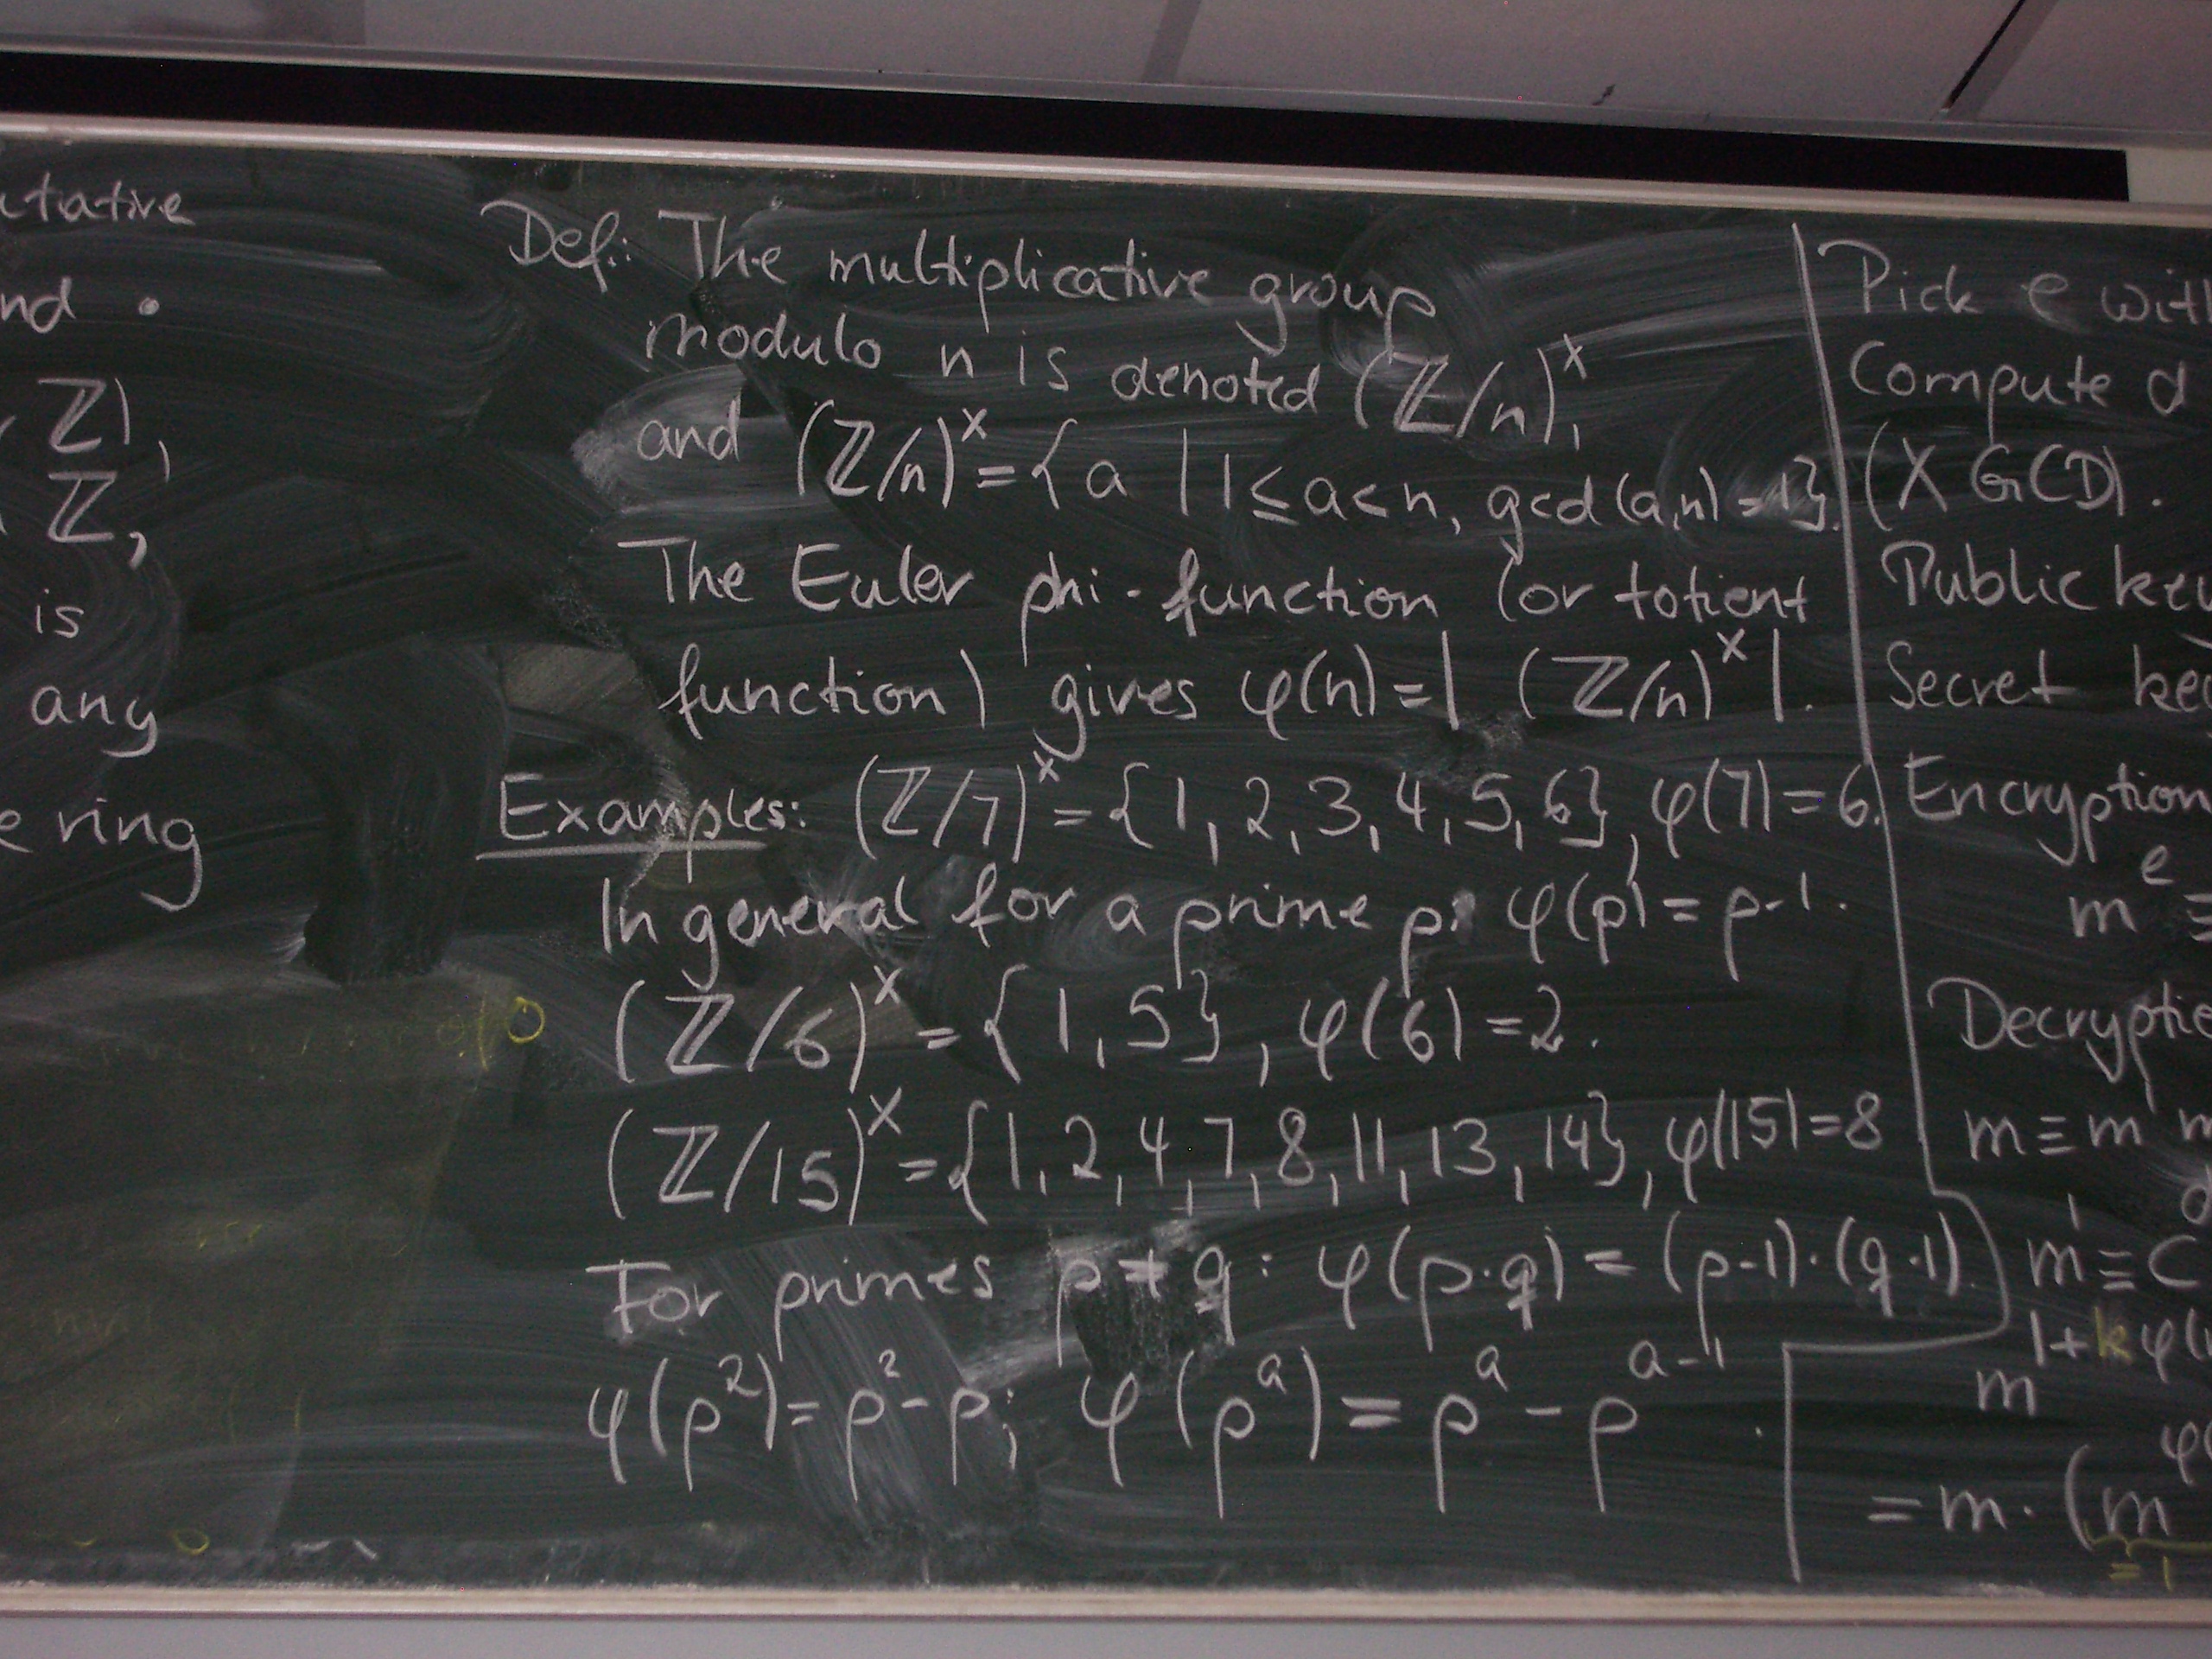 nd •
Z),
Z,
is
any
ring
Def.: The multiplicative group
modulo n is denoted (ℤ/n)^×,
and (ℤ/n)^× = { a | 1 ≤ a < n, gcd(a,n) = 1}.
The Euler phi-function (or totient
function) gives φ(n) = | (ℤ/n)^× |.
Examples: (ℤ/7)^× = {1, 2, 3, 4, 5, 6}, φ(7) = 6.
In general for a prime p: φ(p) = p-1.
(ℤ/6)^× = {1, 5}, φ(6) = 2.
(ℤ/15)^× = {1, 2, 4, 7, 8, 11, 13, 14}, φ(15) = 8
For primes p ≠ q: φ(p·q) = (p-1)·(q-1).
φ(p²) = p² - p; φ(p^a) = p^a - p^{a-1}.
Pick e with
Compute d
(XGCD).
Public key
Secret key
Encryption
m^e ≡
Decryptio
m ≡ m' m
m' ≡ c^d
m^{1+kφ(
= m · (m^φ(
= 1